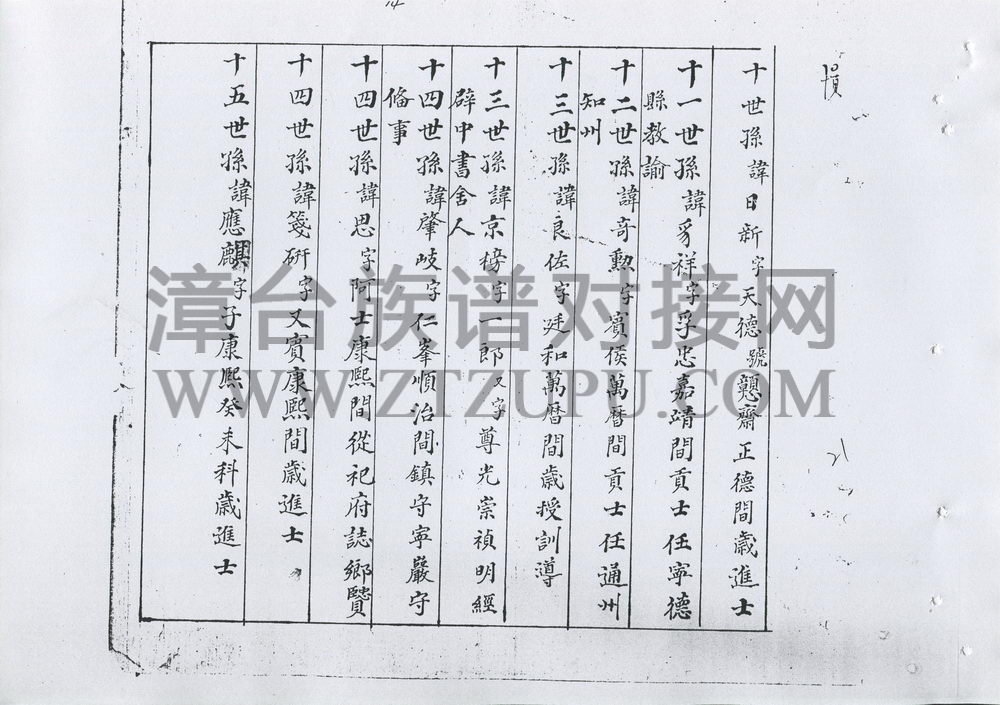 十世孫諱日新字天德號戇齋正德間歲進士
十一世孫諱豸祥字孚忠嘉靖間貢士任寧德
縣教諭
十二世孫諱奇勲字賓侯萬曆間貢士任通州
知州
十三世孫諱良佐字廷和萬曆間歲授訓導
十三世孫諱京榜字一郎又字尊光崇禎明經
辟中書舍人
十四世孫諱肇岐字仁峯順治間鎮守寧嚴守
偹事
十四世孫諱思字阿士康熙間從祀府誌鄉賢
十四世孫諱箋研字又賓康熙間歲進士
十五世孫諱應麒字子康熙癸未科歲進士
漳台族谱对接网
WWW.ZTZUPU.COM